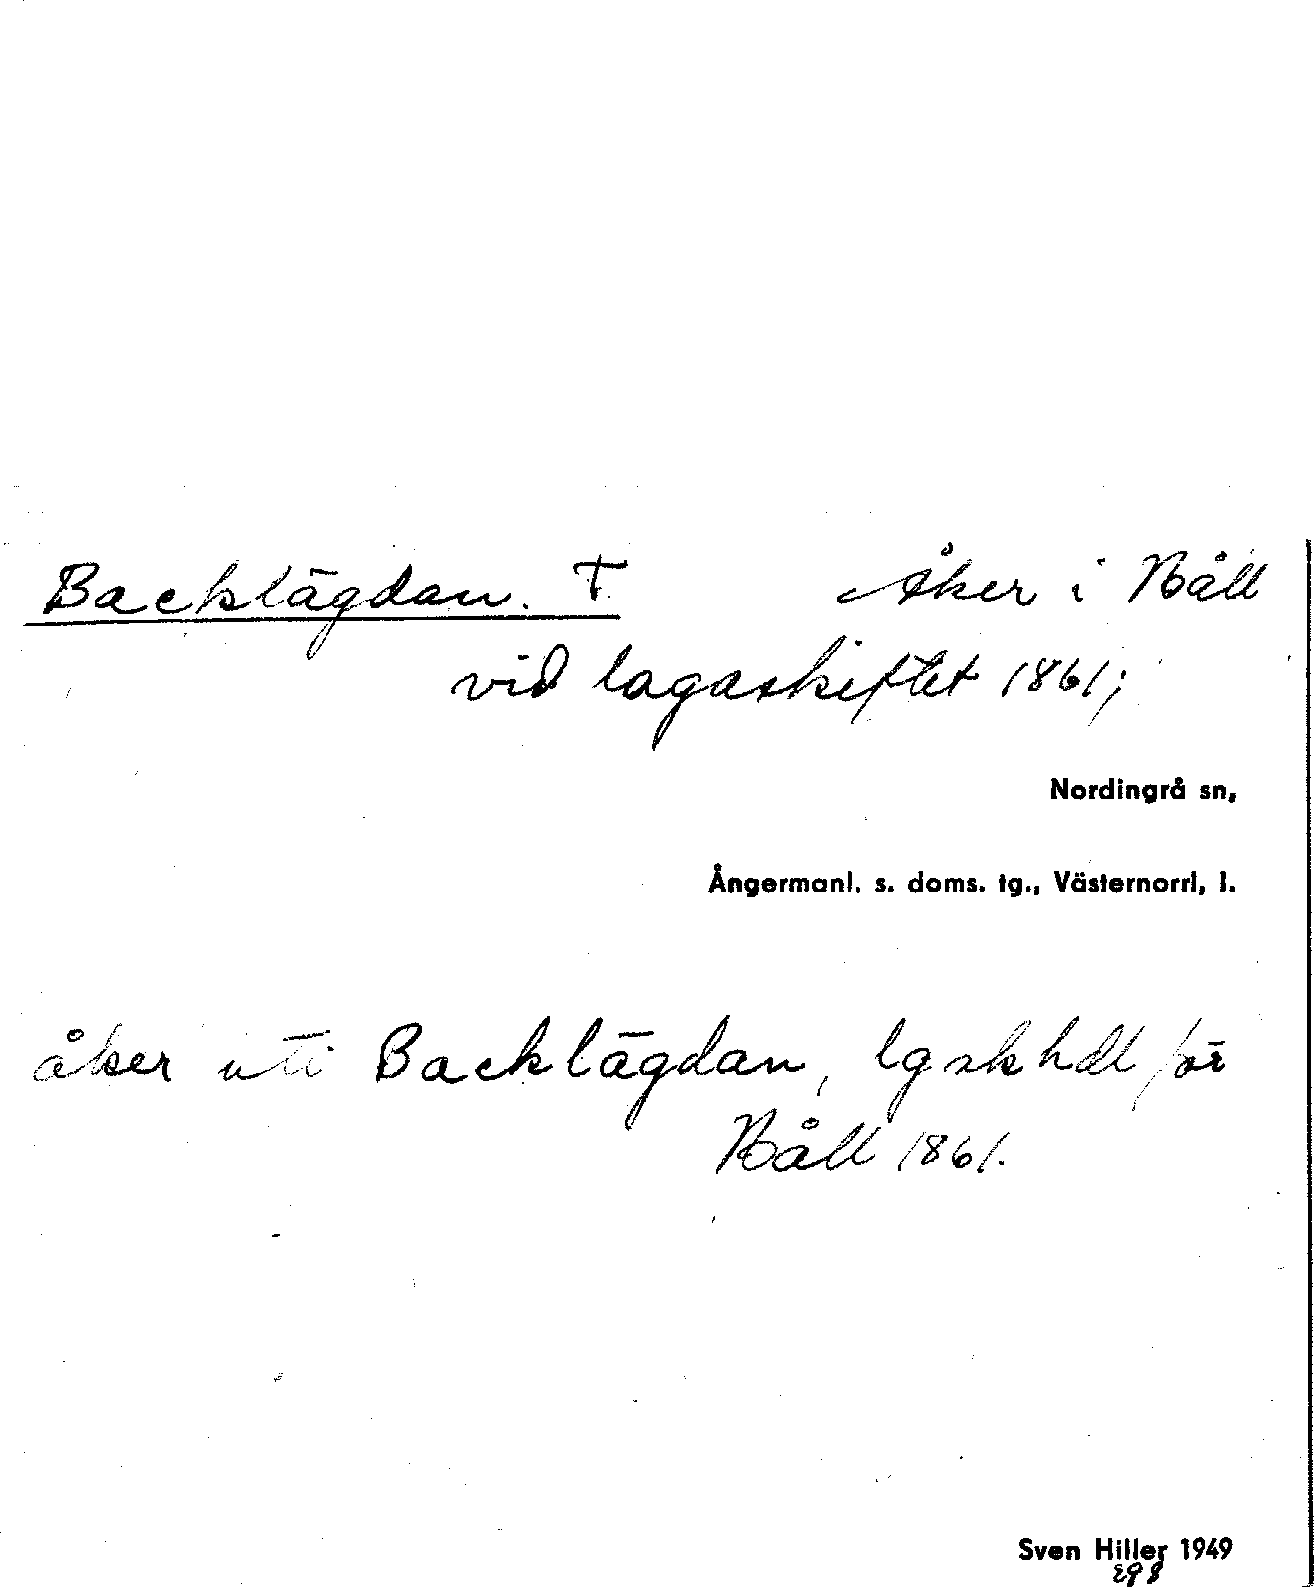 Backlägdan. † Åker i Båll
vid lagaskiftet 1861;
Nordingrå sn,
Ångermanl. s. doms. tg., Västernorrl, l.
åker uti Backlägdan, lgskhdl för
Båll 1861.
Sven Hiller 1949
298